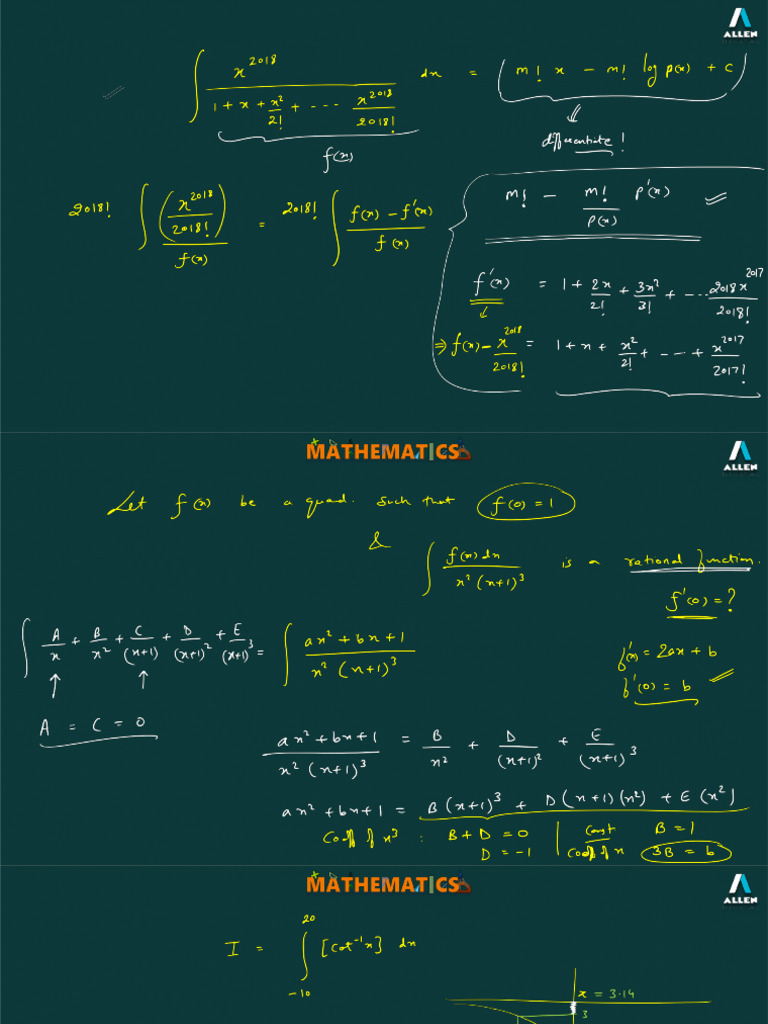 ALLEN
∫ x^2018 / (1 + x + x²/2! + --- x^2018/2018!) dx = m! x − m! log p(x) + c
f(x)
differentiate!
2018! ∫ (x^2018/2018!) / f(x) = 2018! ∫ (f(x) − f'(x)) / f(x)
m! − m!/p(x) p'(x)
f'(x) = 1 + 2x/2! + 3x²/3! + --- 2018x^2017/2018!
⇒ f(x) − x^2018/2018! = 1 + x + x²/2! + --- + x^2017/2017!
MATHEMATICS
ALLEN
Let f(x) be a quad. such that f(0) = 1
& ∫ f(x) dx / x²(x+1)³ is a rational function.
f'(0) = ?
∫ A/x + B/x² + C/(x+1) + D/(x+1)² + E/(x+1)³ = ∫ (ax² + bx + 1) / x²(x+1)³
f'(x) = 2ax + b
f'(0) = b
A = C = 0
(ax² + bx + 1) / x²(x+1)³ = B/x² + D/(x+1)² + E/(x+1)³
ax² + bx + 1 = B(x+1)³ + D(x+1)(x²) + E(x²)
Coeff of x³ : B + D = 0 | Const B = 1
D = −1 | Coeff of x 3B = b
MATHEMATICS
ALLEN
I = ∫_{−10}^{20} [cot⁻¹x] dx
x = 3.14
3